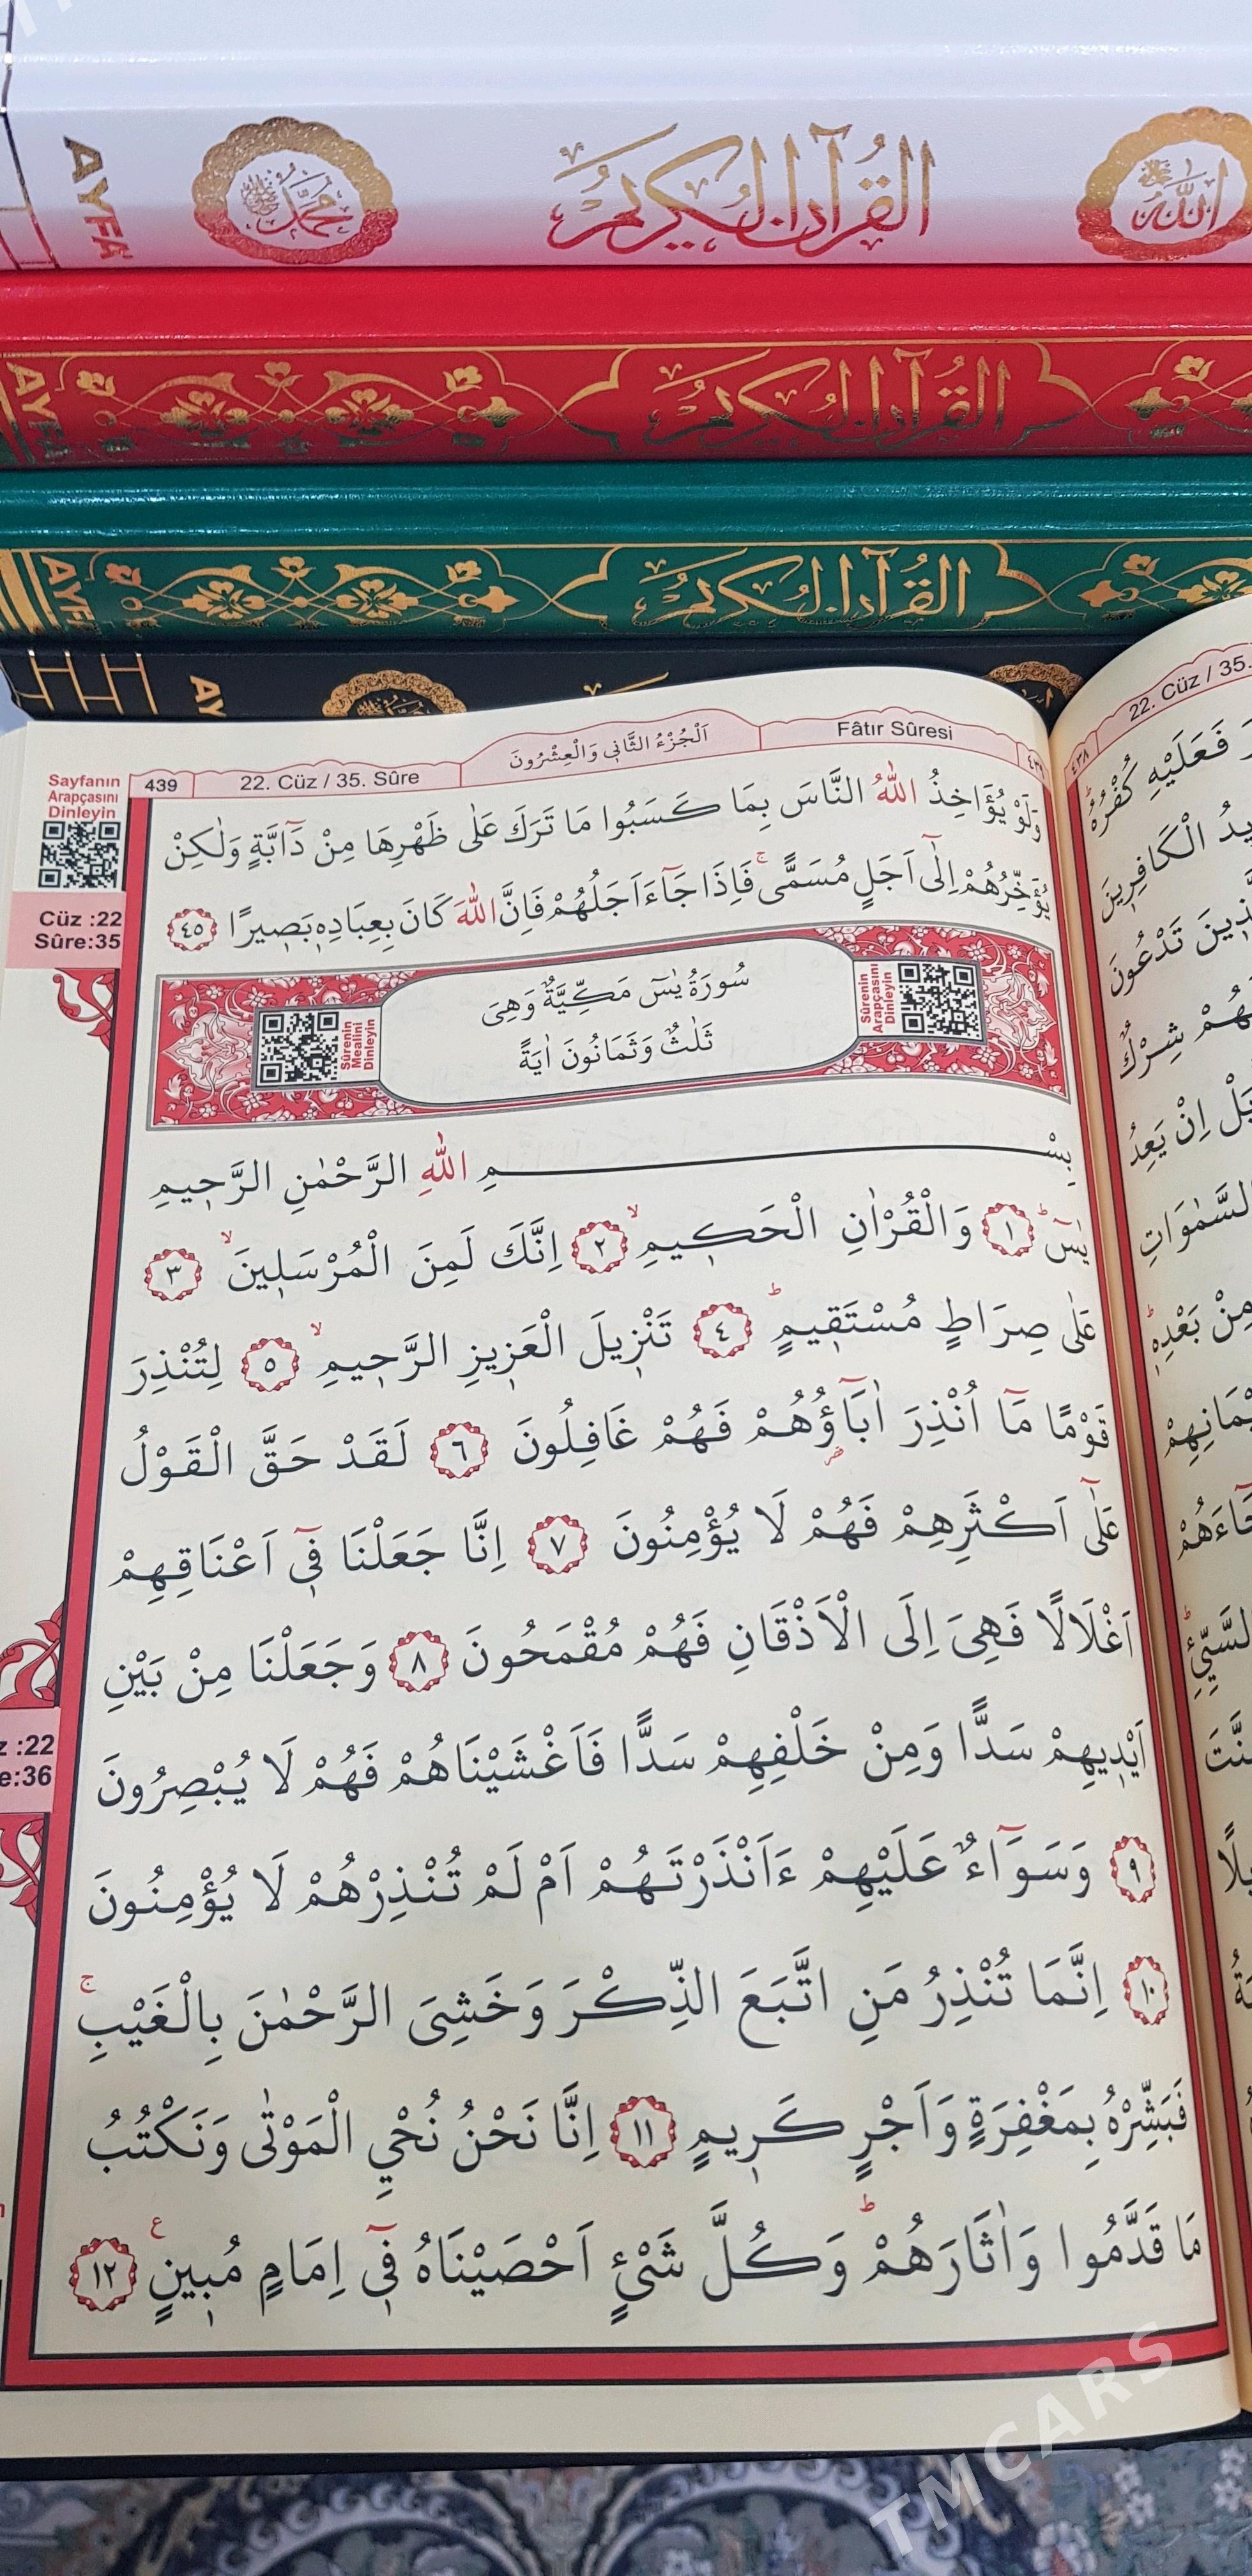 AYFA
القرآن الكريم
محمد
الله
القرآن الكريم
القرآن الكريم
22. Cüz / 35.
٤٣٨
439
22. Cüz / 35. Sûre
اَلْجُزْءُ الثَّانٖي وَالْعِشْرُونَ
Fâtır Sûresi
Sayfanın
Arapçasını
Dinleyin
Cüz :22
Sûre:35
وَلَوْ يُؤَاخِذُ اللّٰهُ النَّاسَ بِمَا كَسَبُوا مَا تَرَكَ عَلٰى ظَهْرِهَا مِنْ دَٓابَّةٍ وَلٰكِنْ
يُؤَخِّرُهُمْ اِلٰٓى اَجَلٍ مُسَمًّىۚ فَاِذَا جَٓاءَ اَجَلُهُمْ فَاِنَّ اللّٰهَ كَانَ بِعِبَادِهٖ بَصٖيرًا ٤٥
سُورَةُ يٰسٓ مَكِّيَّةٌ وَهِيَ
ثَلٰثٌ وَثَمَانُونَ اٰيَةً
Sûrenin
Arapçasını
Dinleyin
Sûrenin
Mealini
Dinleyin
بِسْمِ اللّٰهِ الرَّحْمٰنِ الرَّحٖيمِ
يٰسٓۜ ١ وَالْقُرْاٰنِ الْحَكٖيمِۙ ٢ اِنَّكَ لَمِنَ الْمُرْسَلٖينَۙ ٣
عَلٰى صِرَاطٍ مُسْتَقٖيمٍۜ ٤ تَنْزٖيلَ الْعَزٖيزِ الرَّحٖيمِۙ ٥ لِتُنْذِرَ
قَوْمًا مَٓا اُنْذِرَ اٰبَٓاؤُ۬هُمْ فَهُمْ غَافِلُونَ ٦ لَقَدْ حَقَّ الْقَوْلُ
عَلٰٓى اَكْثَرِهِمْ فَهُمْ لَا يُؤْمِنُونَ ٧ اِنَّا جَعَلْنَا فٖٓي اَعْنَاقِهِمْ
اَغْلَالًا فَهِيَ اِلَى الْاَذْقَانِ فَهُمْ مُقْمَحُونَ ٨ وَجَعَلْنَا مِنْ بَيْنِ
اَيْدٖيهِمْ سَدًّا وَمِنْ خَلْفِهِمْ سَدًّا فَاَغْشَيْنَاهُمْ فَهُمْ لَا يُبْصِرُونَ
٩ وَسَوَٓاءٌ عَلَيْهِمْ ءَاَنْذَرْتَهُمْ اَمْ لَمْ تُنْذِرْهُمْ لَا يُؤْمِنُونَ
١٠ اِنَّمَا تُنْذِرُ مَنِ اتَّبَعَ الذِّكْرَ وَخَشِيَ الرَّحْمٰنَ بِالْغَيْبِۚ
فَبَشِّرْهُ بِمَغْفِرَةٍ وَاَجْرٍ كَرٖيمٍ ١١ اِنَّا نَحْنُ نُحْيِ الْمَوْتٰى وَنَكْتُبُ
مَا قَدَّمُوا وَاٰثَارَهُمْۜ وَكُلَّ شَيْءٍ اَحْصَيْنَاهُ فٖٓي اِمَامٍ مُبٖينٍ ١٢
ع
:22
:36
فَعَلَيْهِ كُفْرُهُۜ
الْكَافِرٖينَ
تَدْعُونَ
شِرْكٌ
بَلْ اِنْ يَعِدُ
السَّمٰوَاتِ
مِنْ بَعْدِهٖۜ
TMCARS